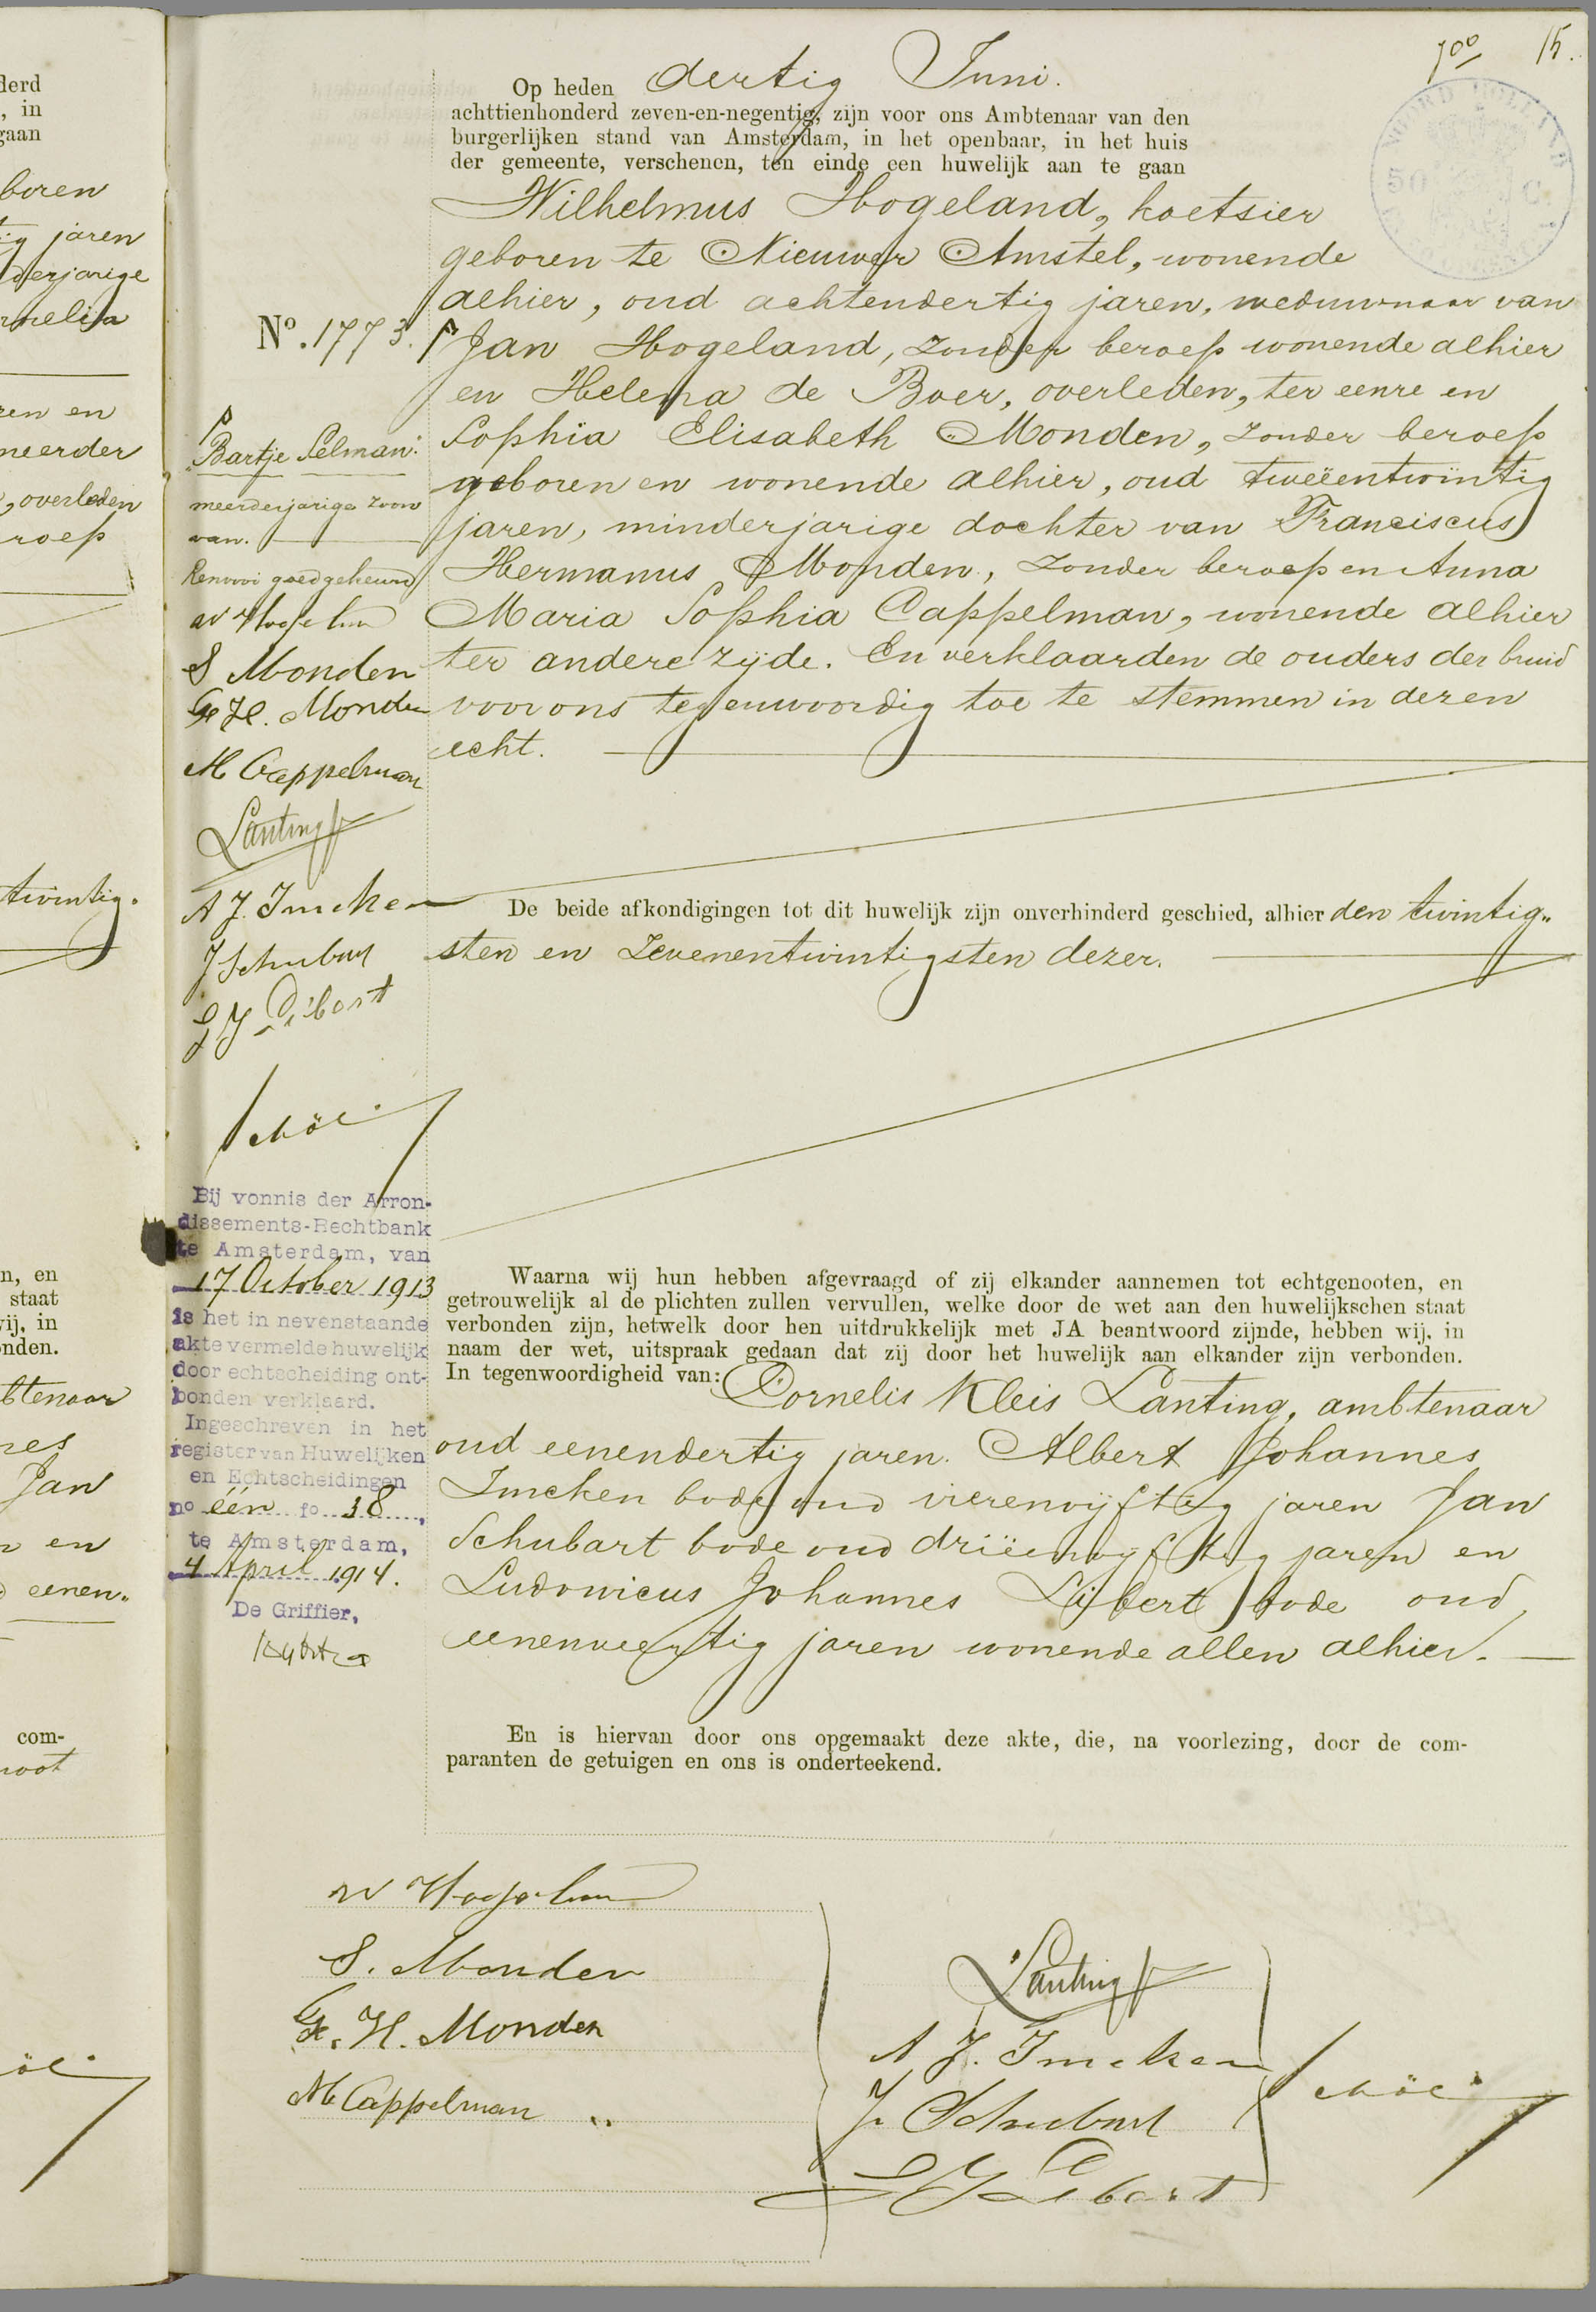 derd
, in
gaan
boren
jaren
derjarige
rnelia
en en
meerder
, overleden
roep
twintig.
n, en
staat
wij, in
onden.
btenaar
nes
Jan
en
eenen"
com-
noot
15.
NOORD HOLLAND
50 C
Op heden dertig Juni.
achttienhonderd zeven-en-negentig, zijn voor ons Ambtenaar van den
burgerlijken stand van Amsterdam, in het openbaar, in het huis
der gemeente, verschenen, ten einde een huwelijk aan te gaan
Wilhelmus Hogeland, koetsier
geboren te Nieuwer Amstel, wonende
alhier, oud achtendertig jaren, weduwnaar van
No. 1773.
Jan Hogeland, zonder beroep wonende alhier
en Helena de Boer, overleden, ter eenre en
Sophia Elisabeth Monden, zonder beroep
geboren en wonende alhier, oud tweëentwintig
jaren, minderjarige dochter van Franciscus
Hermanus Monden, zonder beroep en Anna
Maria Sophia Cappelman, wonende alhier
ter andere zijde. En verklaarden de ouders der bruid
voor ons tegenwoordig toe te stemmen in dezen
echt.
Bartje Selman.
meerderjarige zoon
van.
Renvooi goedgekeurd
W Hogelan
S Monden
F. H. Monden
M Cappelman
Lanting
A J. Imcken
J Schubart
L J Libert
De beide afkondigingen tot dit huwelijk zijn onverhinderd geschied, alhier den twintig"
sten en zevenentwintigsten dezer.
Bij vonnis der Arron-
dissements-Rechtbank
te Amsterdam, van
17 October 1913
is het in nevenstaande
akte vermelde huwelijk
door echtscheiding ont-
bonden verklaard.
Ingeschreven in het
register van Huwelijken
en Echtscheidingen
no één fo 38,
te Amsterdam,
4 April 1914.
De Griffier,
Waarna wij hun hebben afgevraagd of zij elkander aannemen tot echtgenooten, en
getrouwelijk al de plichten zullen vervullen, welke door de wet aan den huwelijkschen staat
verbonden zijn, hetwelk door hen uitdrukkelijk met JA beantwoord zijnde, hebben wij, in
naam der wet, uitspraak gedaan dat zij door het huwelijk aan elkander zijn verbonden.
In tegenwoordigheid van: Cornelis Kleis Lanting, ambtenaar
oud eenendertig jaren. Albert Johannes
Imcken bode oud vierenvijftig jaren Jan
Schubart bode oud drieënvijftig jaren en
Ludovicus Johannes Libert bode oud
eenenveertig jaren wonende allen alhier.
En is hiervan door ons opgemaakt deze akte, die, na voorlezing, door de com-
paranten de getuigen en ons is onderteekend.
W Hogelan
S. Monden
F. H. Monden
M Cappelman
Lanting
A J. Imcken
J. Schubart
L J Libert